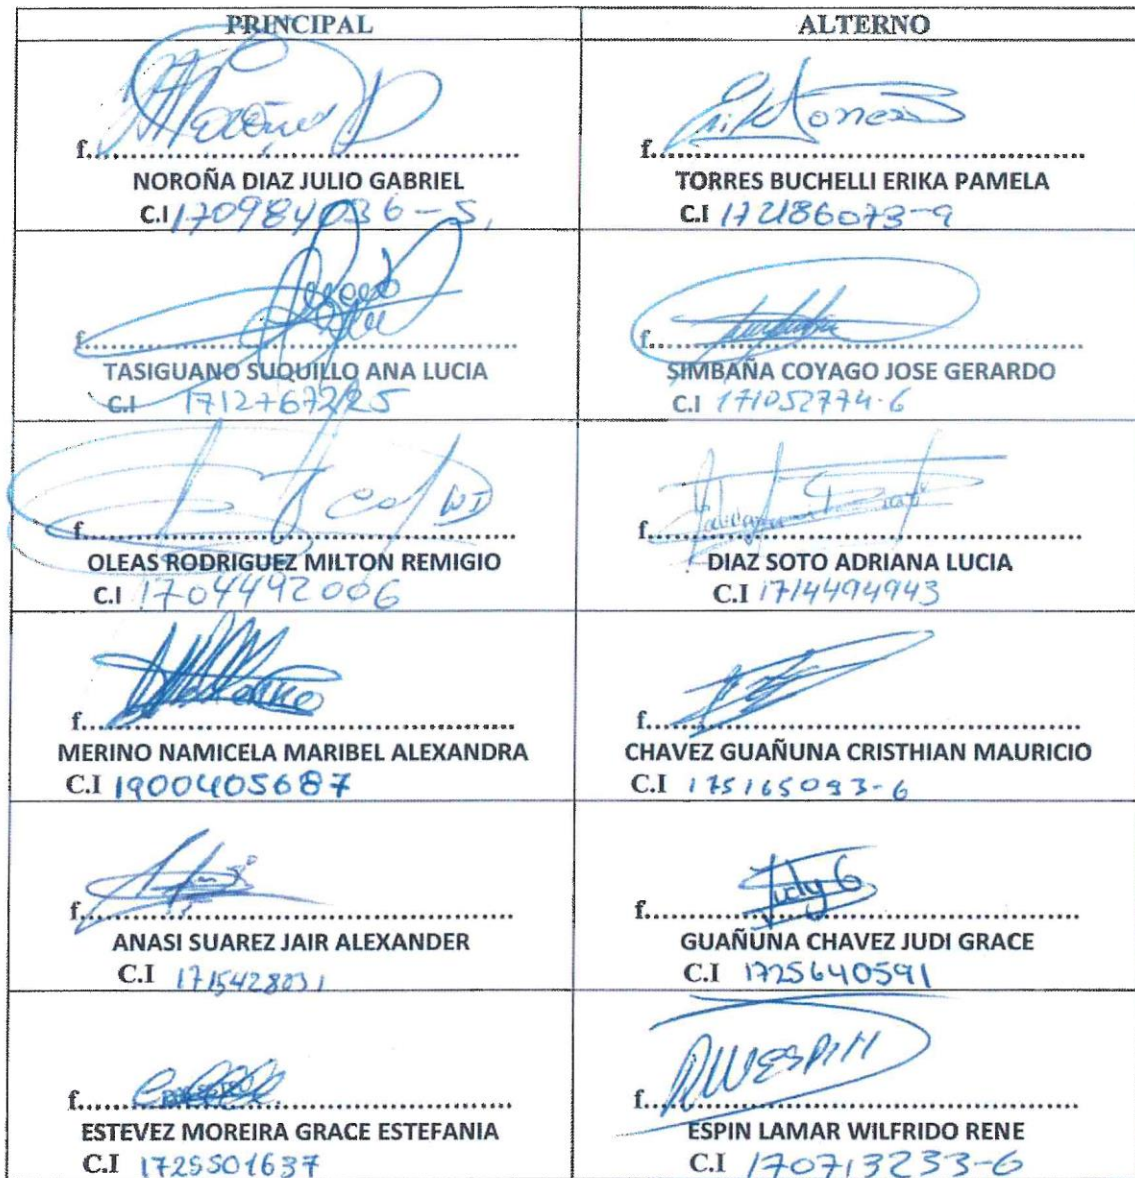 PRINCIPAL
ALTERNO
f.
NOROÑA DIAZ JULIO GABRIEL
C.I 170984036-5
f.
TORRES BUCHELLI ERIKA PAMELA
C.I 172186073-9
f.
TASIGUANO SUQUILLO ANA LUCIA
C.I 1712767225
f.
SIMBAÑA COYAGO JOSE GERARDO
C.I 171052774-6
f.
OLEAS RODRIGUEZ MILTON REMIGIO
C.I 1704492006
f.
DIAZ SOTO ADRIANA LUCIA
C.I 1714494943
f.
MERINO NAMICELA MARIBEL ALEXANDRA
C.I 1900405687
f.
CHAVEZ GUAÑUNA CRISTHIAN MAURICIO
C.I 175165093-6
f.
ANASI SUAREZ JAIR ALEXANDER
C.I 1715428031
f. Judy G
GUAÑUNA CHAVEZ JUDI GRACE
C.I 1725640591
f.
ESTEVEZ MOREIRA GRACE ESTEFANIA
C.I 1725501637
f.
ESPIN LAMAR WILFRIDO RENE
C.I 170713233-6